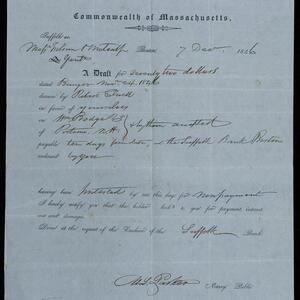 Commonwealth of Massachusetts.
Suffolk ss.
Messrs Nelson & Metcalf Boston 7 Decr 1846
Gents
A Draft for seventy two dollars
dated Bangor Novr 24. 1846
drawn by Robert
in favor of yourselves
on Wm Dodge
accepted
payable ten days from date, at the Suffolk Bank Boston
endorsed by you
having been Protested by me this day for Nonpayment
I hereby notify you that the holder looks to you for payment interest
cost and damage.
Done at the request of the Cashier of the Suffolk Bank
Notary Public